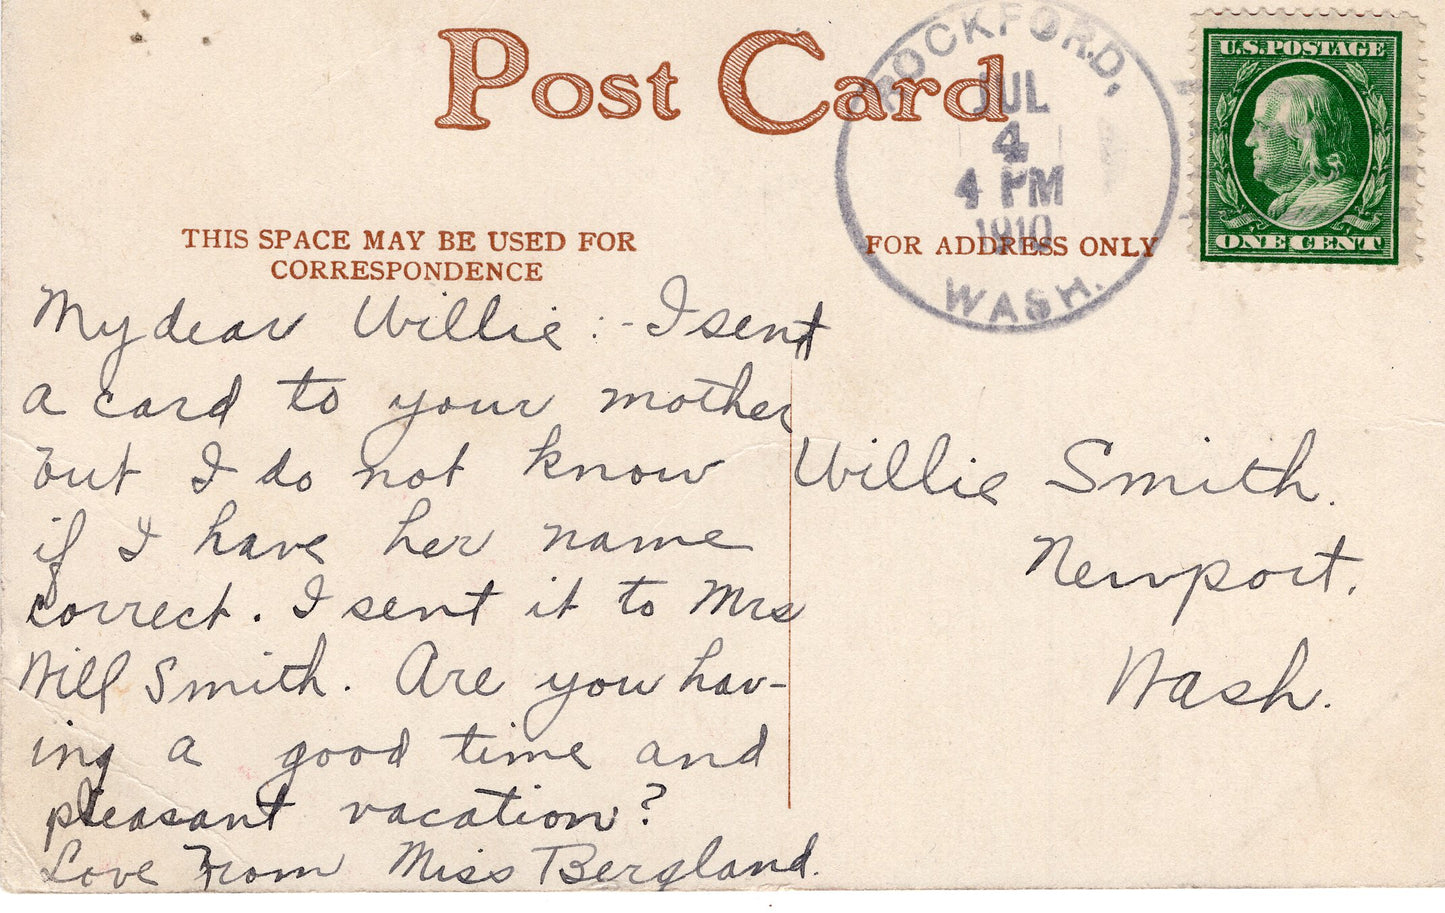 Post Card
ROCKFORD,
JUL
4
4 PM
1910
WASH.
U.S. POSTAGE
ONE CENT
THIS SPACE MAY BE USED FOR
CORRESPONDENCE
FOR ADDRESS ONLY
My dear Willie:- I sent
a card to your mother
but I do not know
if I have her name
correct. I sent it to Mrs
Will Smith. Are you hav-
ing a good time and
pleasant vacation?
Love From Miss Bergland.
Willie Smith.
Newport.
Wash.